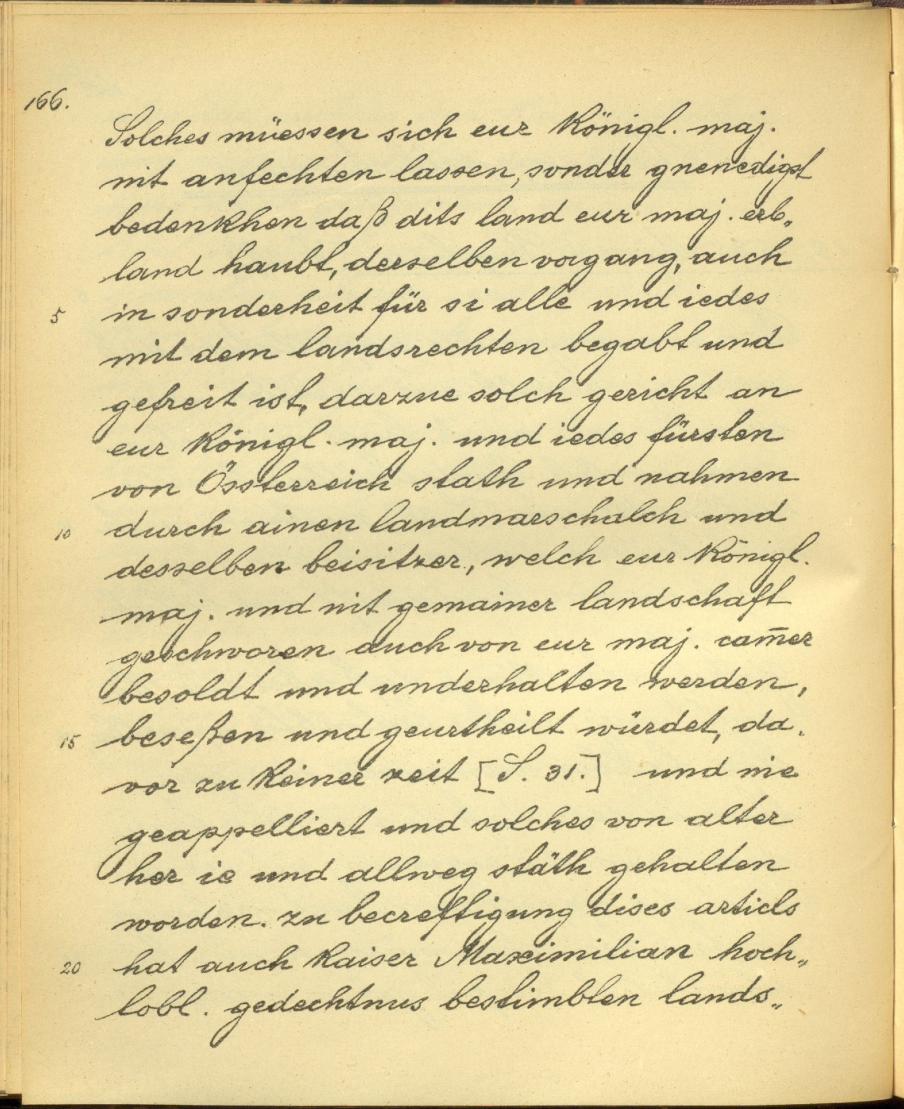 166.
Solches müessen sich eur Königl. maj.
nit anfechten lassen, sonder gnenedigst
bedenkhen daß dits land eur maj. erb„
land haubt, derselben vorgang, auch
5 in sonderheit für si alle und iedes
mit dem landsrechten begabt und
gefreit ist, darzue solch gericht an
eur Königl. maj. und iedes fürsten
von Össterreich stath und nahmen
10 durch ainen landmarschalch und
desselben beisitzer, welch eur Königl.
maj. und nit gemainer landschaft
geschworen auch von eur maj. cam̄er
besoldt und underhalten werden,
15 beseßen und geurtheilt würdet, da„
vor zu keiner zeit [S. 31.] und nie
geappelliert und solches von alter
her ie und allweg stäth gehalten
worden. zu becreftigung dises articls
20 hat auch kaiser Maximilian hoch„
lobl. gedechtnus bestimbten lands„